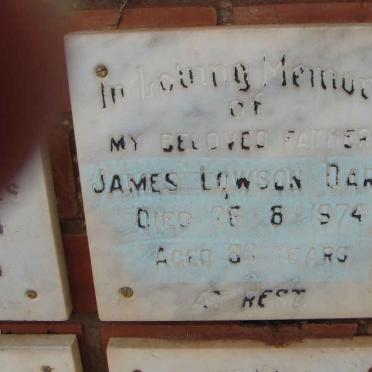 In Loving Memor
of
MY BELOVED FATHER
JAMES LOWSON DAR
DIED 26 8 1974
AGED YEARS
AT REST